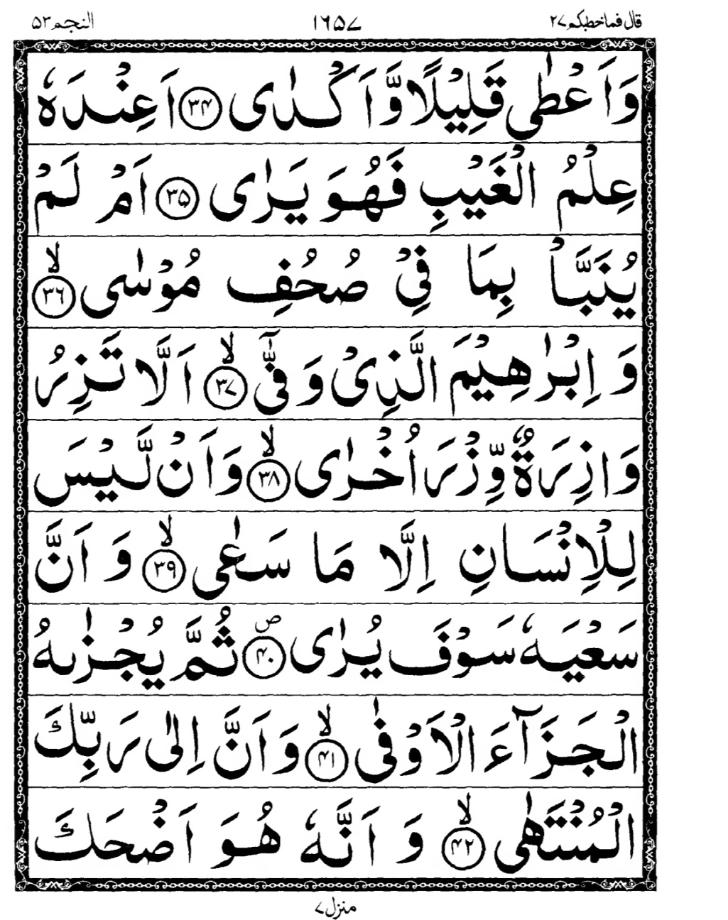 قال فماخطبکم ۲۷ ۱۶۵۷ النجم ۵۳
وَاَعْطٰی قَلِیْلًا وَّاَکْدٰی ﴿۳۴﴾ اَعِنْدَهٗ
عِلْمُ الْغَیْبِ فَهُوَ یَرٰی ﴿۳۵﴾ اَمْ لَمْ
یُنَبَّاْ بِمَا فِیْ صُحُفِ مُوْسٰی ﴿۳۶﴾ۙ
وَ اِبْرٰهِیْمَ الَّذِیْ وَفّٰۤی ﴿۳۷﴾ۙ اَلَّا تَزِرُ
وَازِرَةٌ وِّزْرَ اُخْرٰی ﴿۳۸﴾ۙ وَاَنْ لَّیْسَ
لِلْاِنْسَانِ اِلَّا مَا سَعٰی ﴿۳۹﴾ۙ وَ اَنَّ
سَعْیَهٗ سَوْفَ یُرٰی ﴿۴۰﴾ص ثُمَّ یُجْزٰىهُ
الْجَزَآءَ الْاَوْفٰی ﴿۴۱﴾ۙ وَاَنَّ اِلٰی رَبِّكَ
الْمُنْتَهٰی ﴿۴۲﴾ۙ وَ اَنَّهٗ هُوَ اَضْحَكَ
منزل ۷